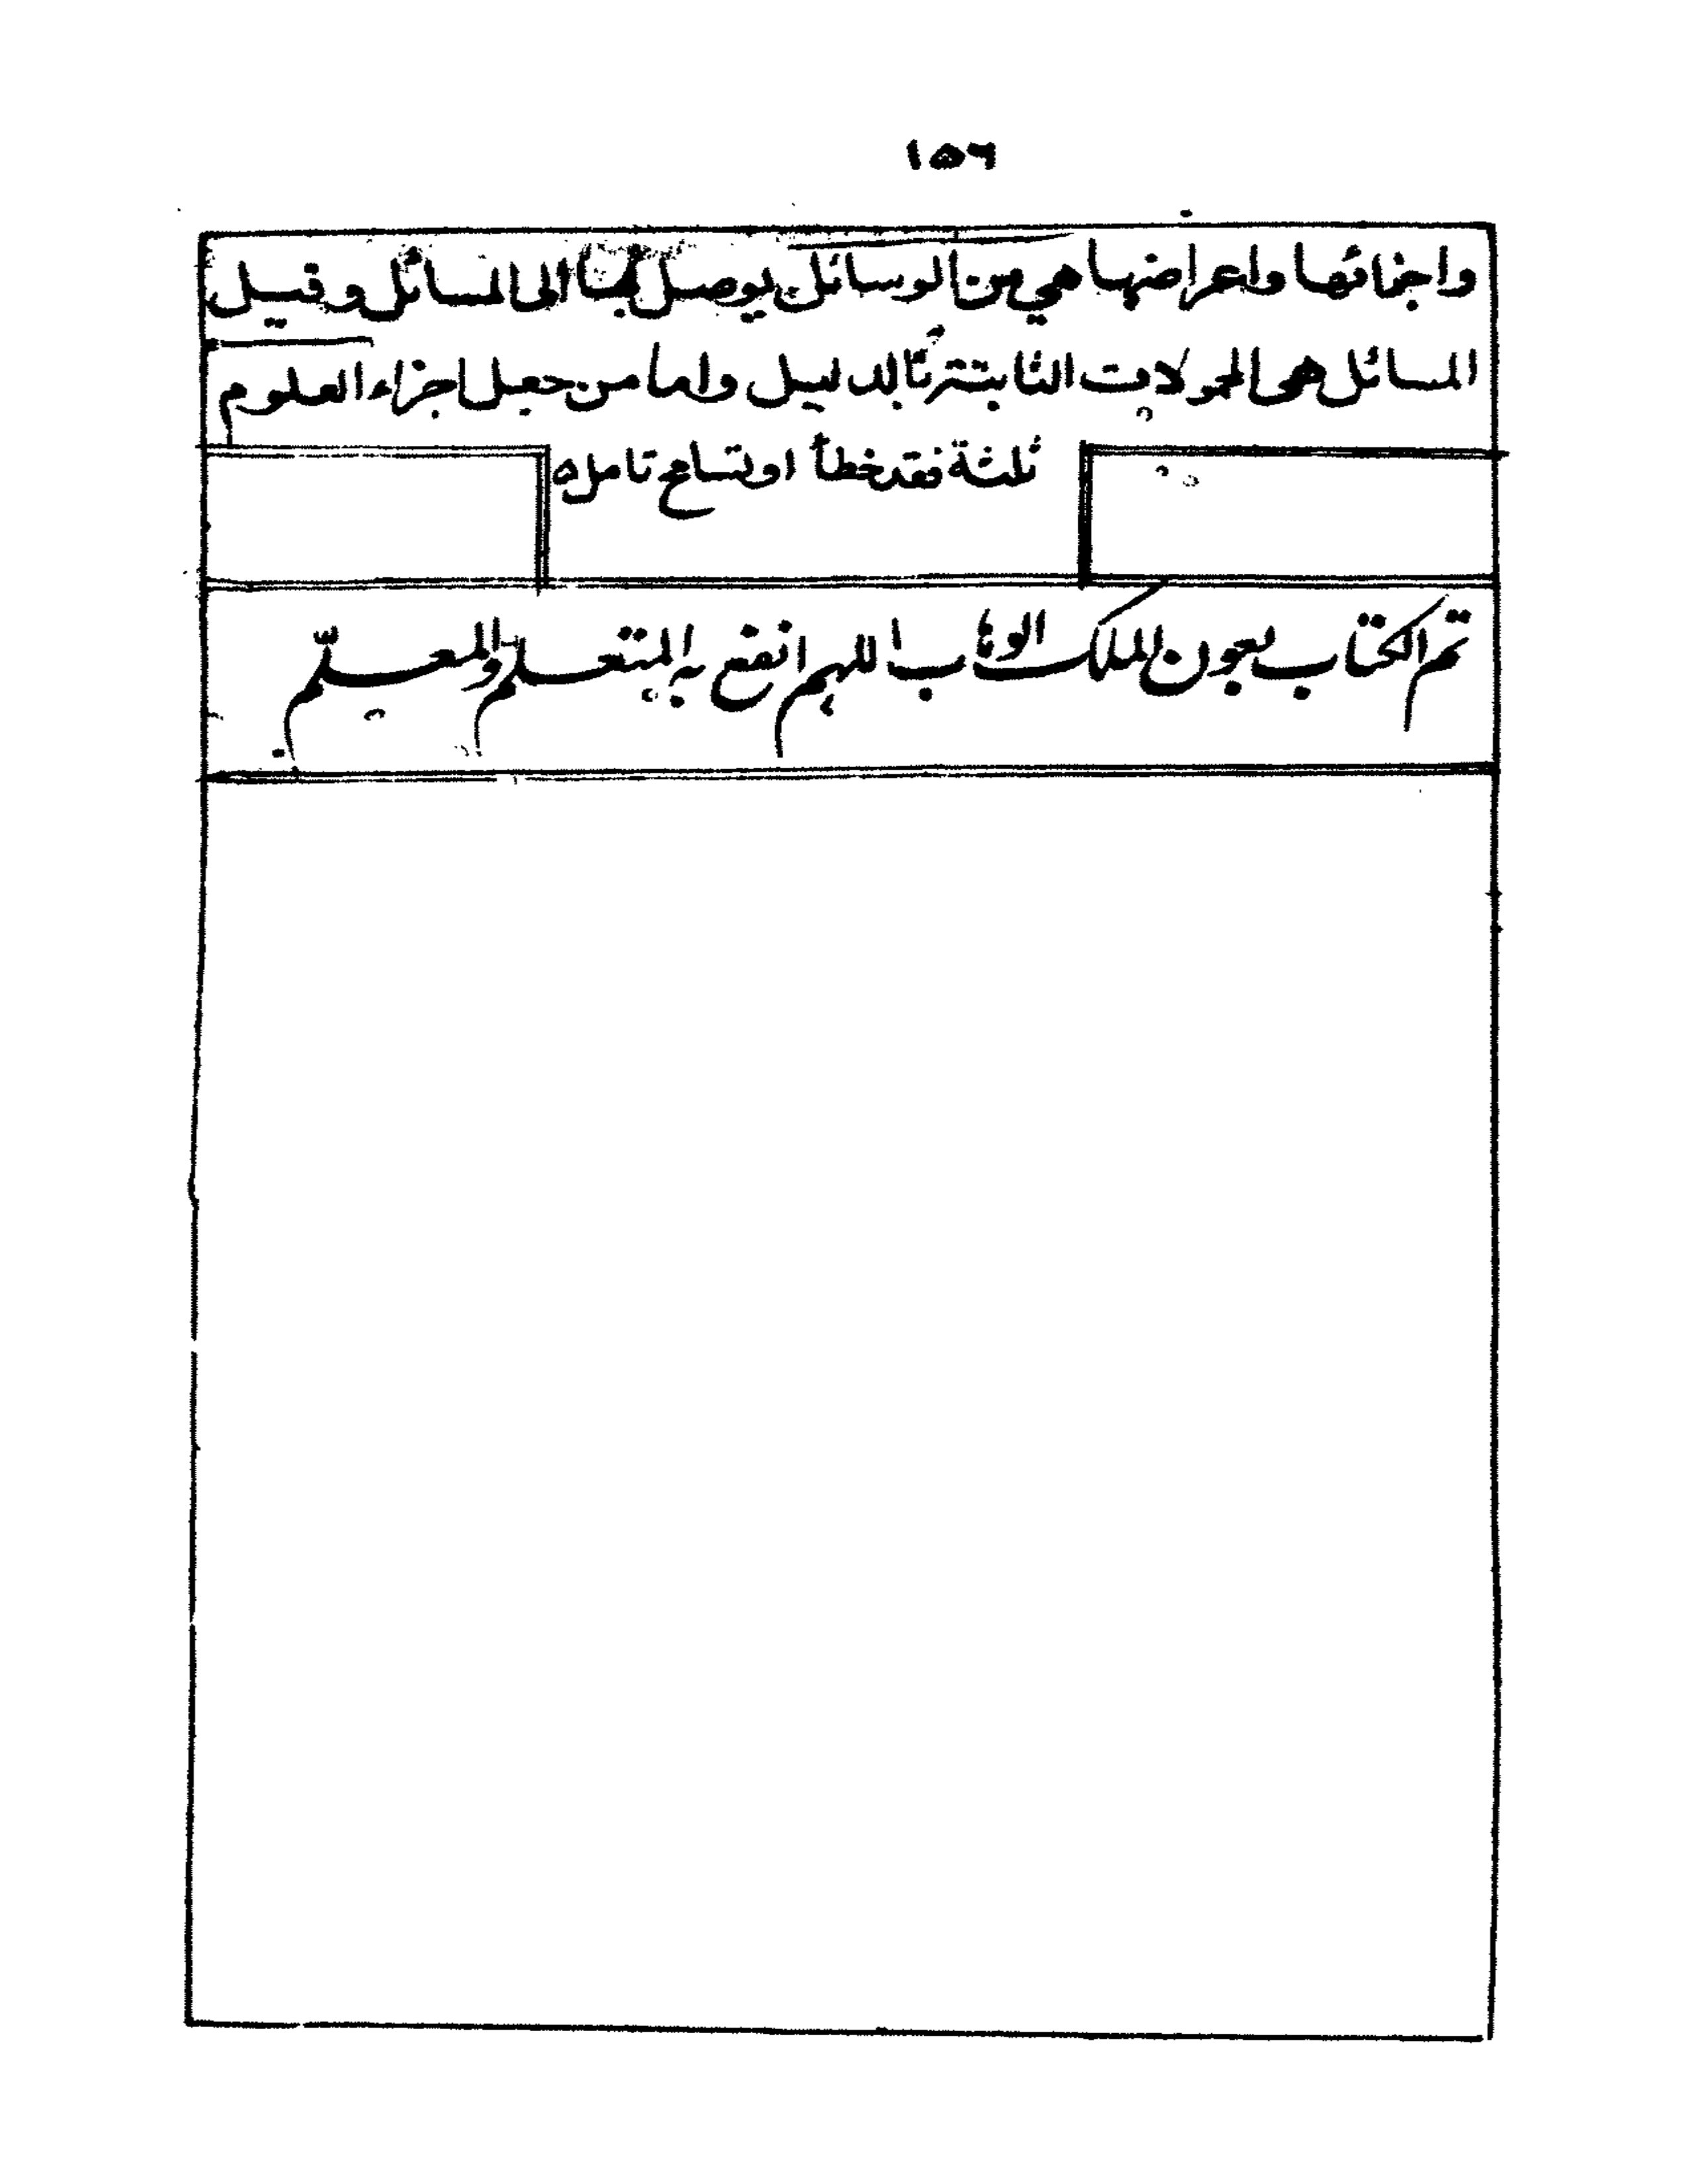 ١٥٦
واجزائها واعراضها هي من الوسائل يوصل بها الى المسائل وقيل
المسائل هى المحمولات الثابتة بالدليل واما من جعل اجزاء العلوم
ثلثة فقد خطأ او تسامح تامل
تم الكتاب بعون الملك الوهاب اللهم انفع به المتعلم والمعلّم